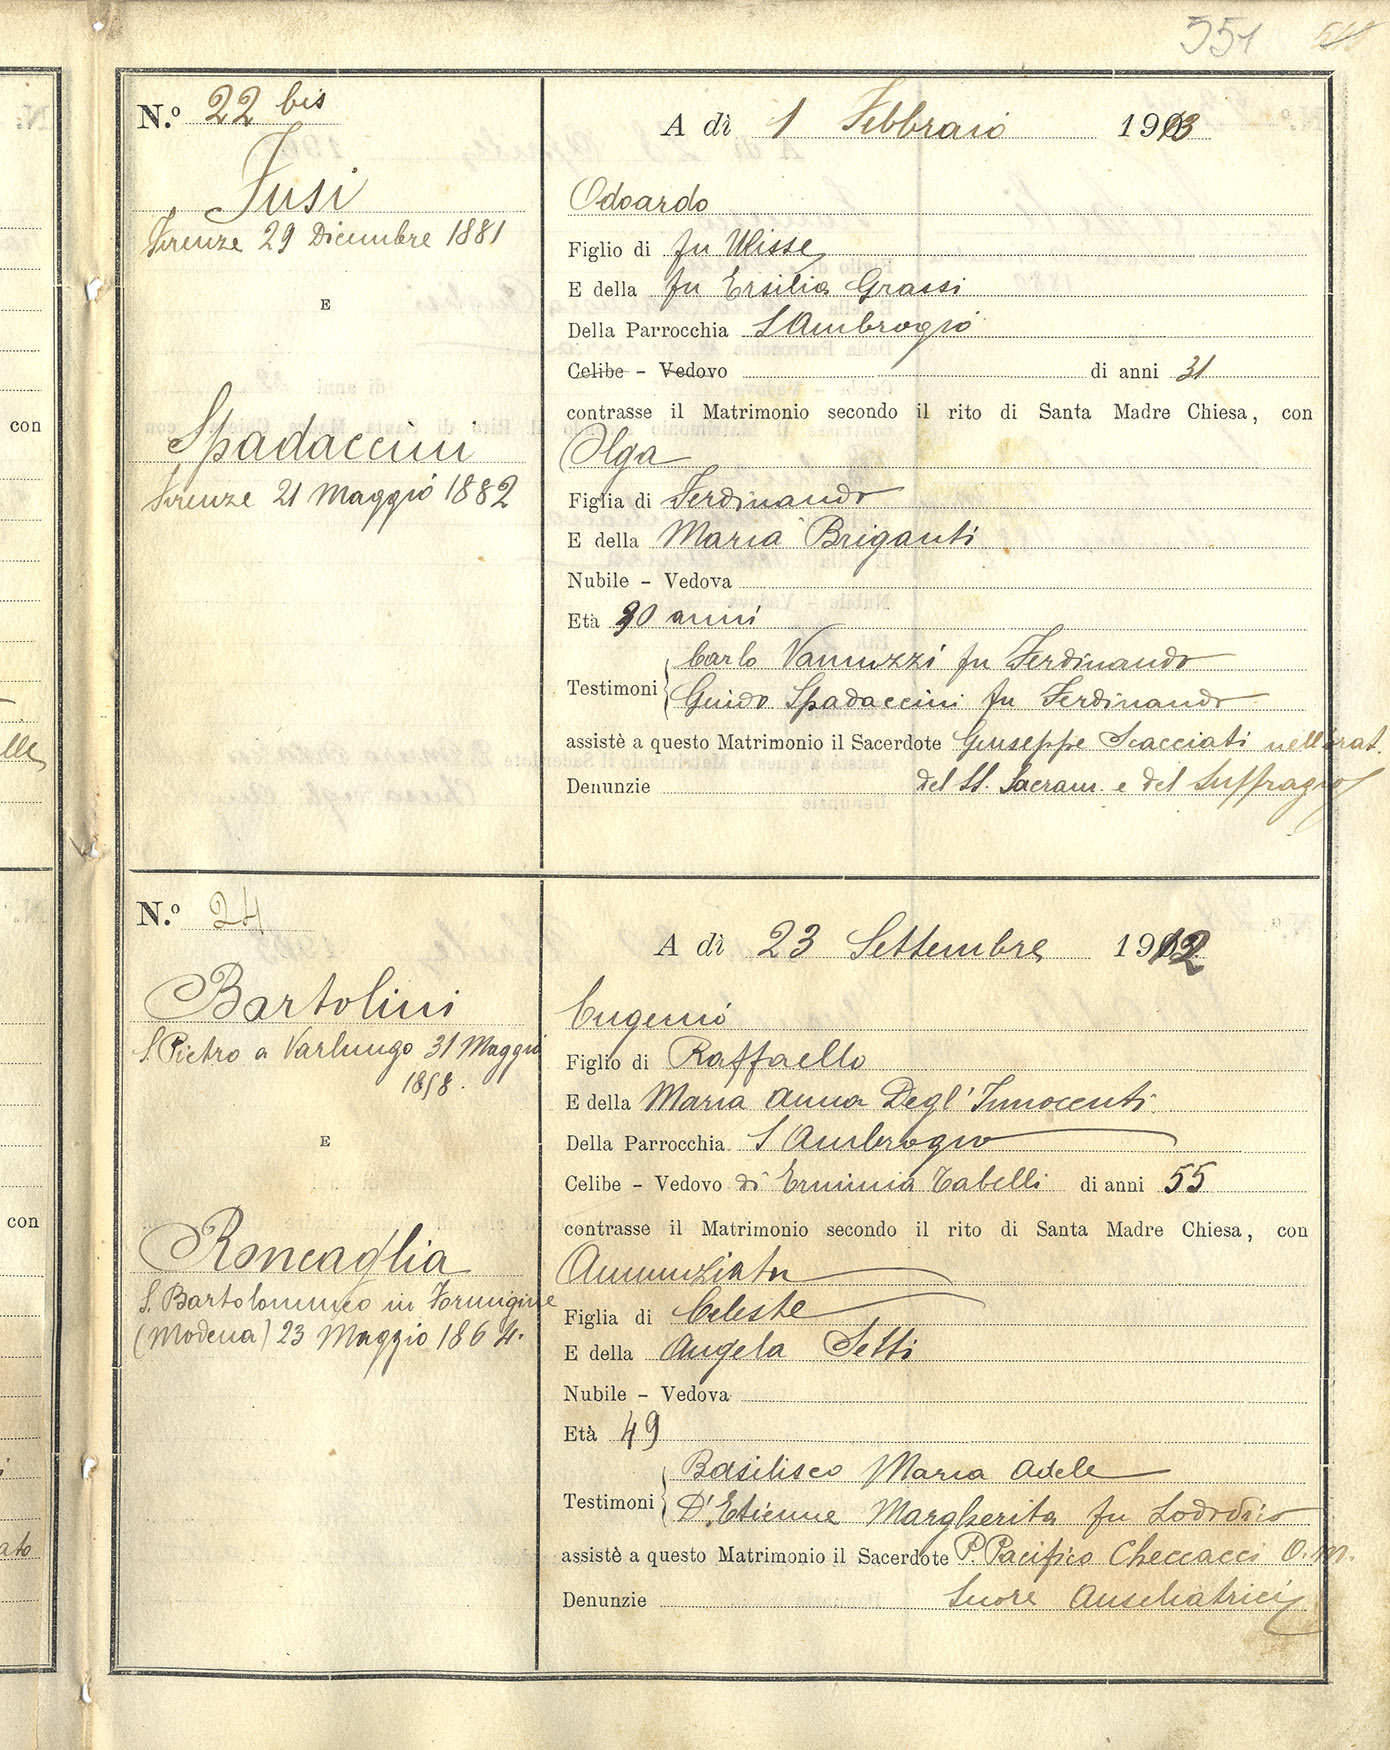 551
N.º 22 bis
Fusi
Firenze 29 Dicembre 1881
E
Spadaccini
Firenze 21 Maggio 1882
A dì 1 Febbraio 1913
Odoardo
Figlio di fu Ulisse
E della fu Ersilia Grassi
Della Parrocchia S Ambrogio
Celibe - Vedovo di anni 31
contrasse il Matrimonio secondo il rito di Santa Madre Chiesa, con
Olga
Figlia di Ferdinando
E della Maria Briganti
Nubile - Vedova
Età 30 anni
Carlo Vannuzzi fu Ferdinando
Testimoni
Guido Spadaccini fu Ferdinando
assistè a questo Matrimonio il Sacerdote Giuseppe Scacciati nell'orat.
Denunzie del SS. Sacram. e del Suffragio
N.º 24
Bartolini
S. Pietro a Varlungo 31 Maggio
1858.
E
Roncaglia
S. Bartolommeo in Formigine
(Modena) 23 Maggio 1864.
A dì 23 Settembre 1912
Eugenio
Figlio di Raffaello
E della Maria Anna Degl'Innocenti
Della Parrocchia S Ambrogio
Celibe - Vedovo di Erminia Tabelli di anni 55
contrasse il Matrimonio secondo il rito di Santa Madre Chiesa, con
Annunziata
Figlia di Celeste
E della Angela Setti
Nubile - Vedova
Età 49
Basilisco Maria Adele
Testimoni
D'Etienne Margherita fu Lodovico
assistè a questo Matrimonio il Sacerdote P. Pacifico Checcacci O. M.
Denunzie Suore Ausiliatrici
con
con